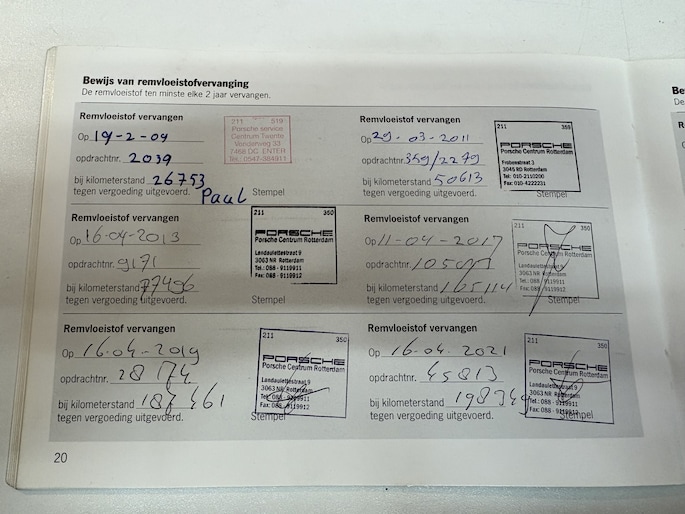 Bewijs van remvloeistofvervanging
De remvloeistof ten minste elke 2 jaar vervangen.
Remvloeistof vervangen
Op 19-2-09
opdrachtnr. 2039
bij kilometerstand 26753
tegen vergoeding uitgevoerd. Paul
211 519
Porsche service
Centrum Twente
Vonderweg 33
7468 DC ENTER
Tel.: 0547-384911
Stempel
Remvloeistof vervangen
Op 29-03-2011
opdrachtnr. 359/2279
bij kilometerstand 50613
tegen vergoeding uitgevoerd.
211 350
PORSCHE
Porsche Centrum Rotterdam
Frobenstraat 3
3045 RD Rotterdam
Tel: 010-2110200
Fax: 010-4222231
Stempel
Remvloeistof vervangen
Op 16-04-2013
opdrachtnr. 9171
bij kilometerstand 77496
tegen vergoeding uitgevoerd.
211 350
PORSCHE
Porsche Centrum Rotterdam
Landaulettestraat 9
3063 NR Rotterdam
Tel.: 088 - 9119911
Fax: 088 - 9119912
Stempel
Remvloeistof vervangen
Op 11-04-2017
opdrachtnr.
bij kilometerstand 165114
tegen vergoeding uitgevoerd.
211 350
PORSCHE
Porsche Centrum Rotterdam
Landaulettestraat 9
3063 NR Rotterdam
Tel.: 088 - 9119911
Fax: 088 - 9119912
Stempel
Remvloeistof vervangen
Op 16-04-2019
opdrachtnr. 28174
bij kilometerstand 187461
tegen vergoeding uitgevoerd.
211 350
PORSCHE
Porsche Centrum Rotterdam
Landaulettestraat 9
3063 NR Rotterdam
Tel.: 088 - 9119911
Fax: 088 - 9119912
Stempel
Remvloeistof vervangen
Op 16-04-2021
opdrachtnr. 45813
bij kilometerstand 198349
tegen vergoeding uitgevoerd.
211 350
PORSCHE
Porsche Centrum Rotterdam
Landaulettestraat 9
3063 NR Rotterdam
Tel.: 088 - 9119911
Fax: 088 - 9119912
Stempel
20